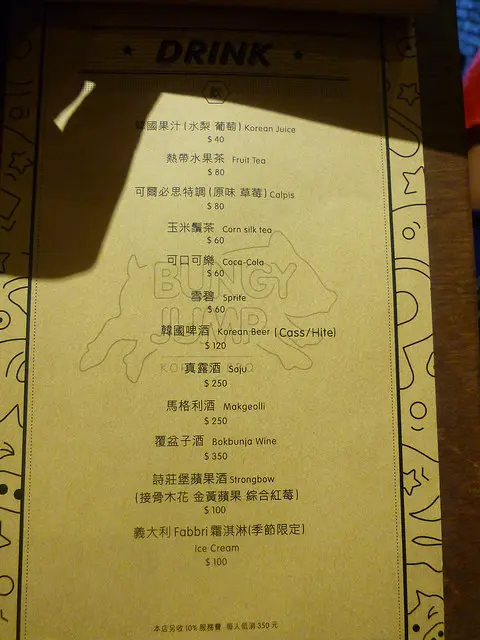 DRINK
飲
韓國果汁(水梨 葡萄) Korean Juice
$ 40
熱帶水果茶 Fruit Tea
$ 80
可爾必思特調(原味 草莓) Calpis
$ 80
玉米鬚茶 Corn silk tea
$ 60
可口可樂 Coca-Cola
$ 60
BUNGY
雪碧 Sprite
$ 60
JUMP
韓國啤酒 Korean Beer (Cass/Hite)
$ 120
KOREAN BBQ
真露酒 Soju
$ 250
馬格利酒 Makgeolli
$ 250
覆盆子酒 Bokbunja Wine
$ 350
詩莊堡蘋果酒 Strongbow
(接骨木花 金黃蘋果 綜合紅莓)
$ 100
義大利 Fabbri 霜淇淋(季節限定)
Ice Cream
$ 100
本店另收 10% 服務費 每人低消 350 元